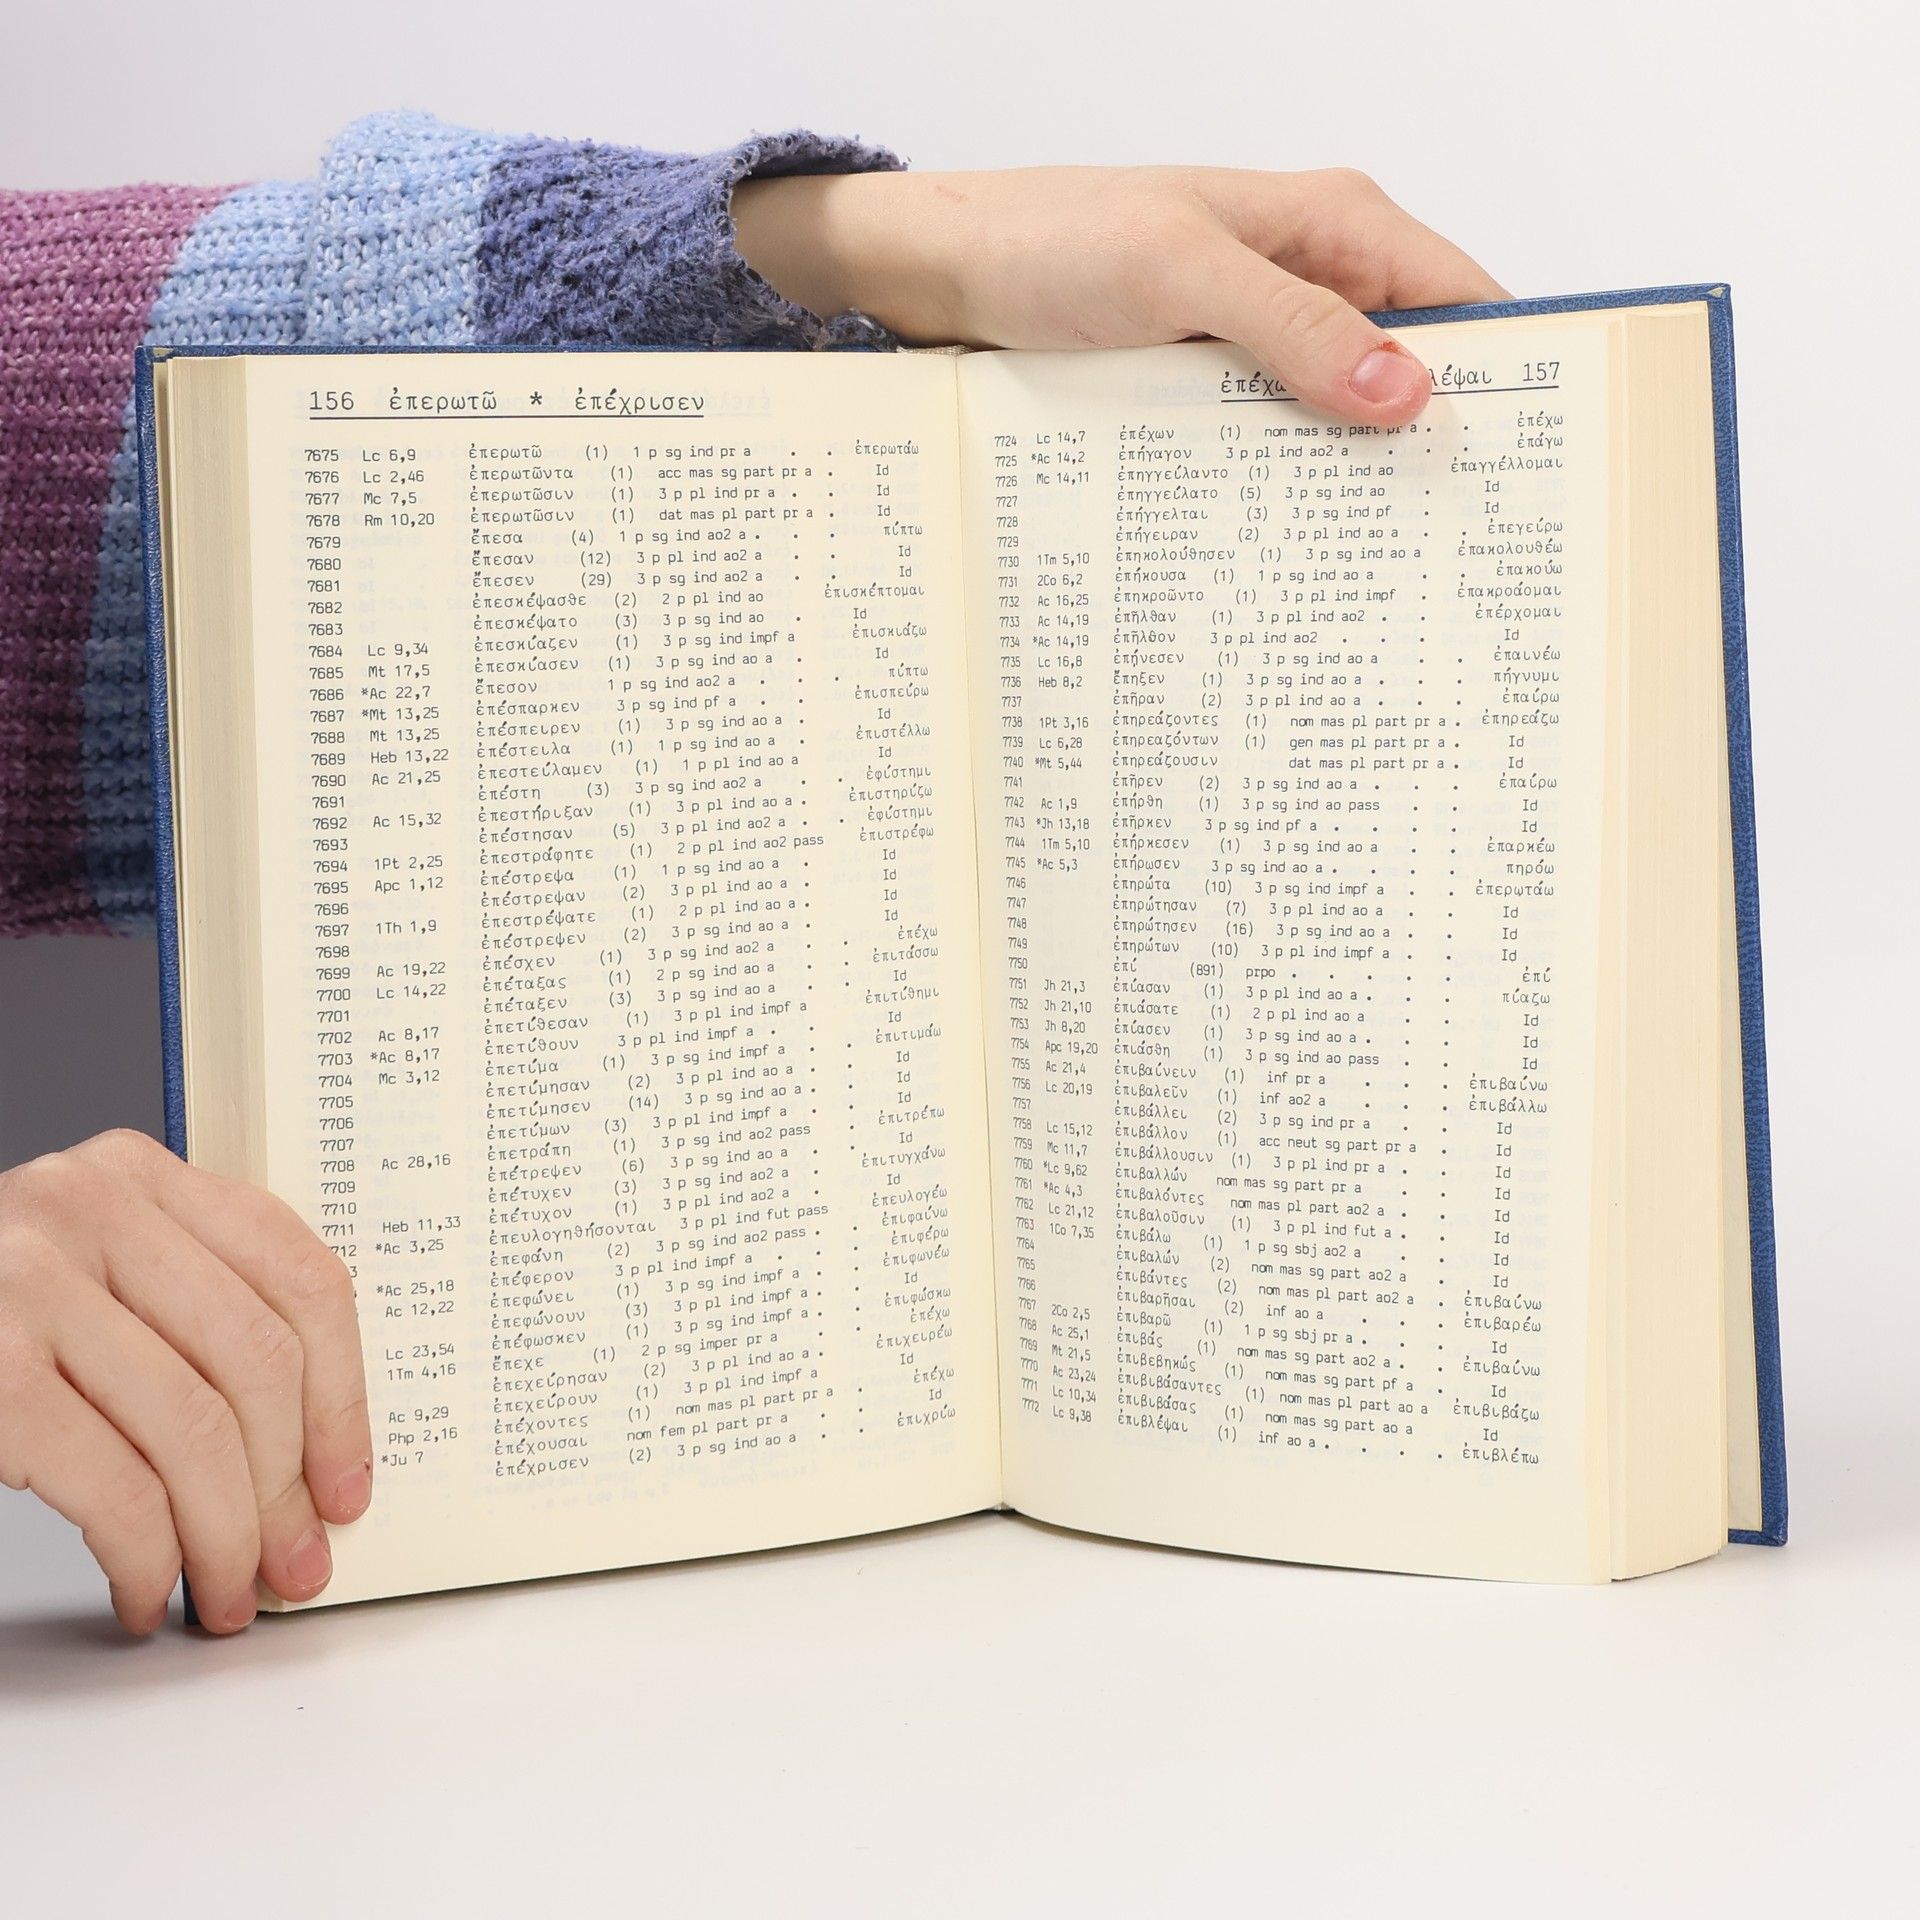 156 ἐπερωτῶ * ἐπέχρισεν
7675 Lc 6,9 ἐπερωτῶ (1) 1 p sg ind pr a . . ἐπερωτάω
7676 Lc 2,46 ἐπερωτῶντα (1) acc mas sg part pr a . Id
7677 Mc 7,5 ἐπερωτῶσιν (1) 3 p pl ind pr a . . Id
7678 Rm 10,20 ἐπερωτῶσιν (1) dat mas pl part pr a . Id
7679 ἔπεσα (4) 1 p sg ind ao2 a . . . πίπτω
7680 ἔπεσαν (12) 3 p pl ind ao2 a . . Id
7681 ἔπεσεν (29) 3 p sg ind ao2 a . . Id
7682 ἐπεσκέψασθε (2) 2 p pl ind ao ἐπισκέπτομαι
7683 ἐπεσκέψατο (3) 3 p sg ind ao . Id
7684 Lc 9,34 ἐπεσκίαζεν (1) 3 p sg ind impf a ἐπισκιάζω
7685 Mt 17,5 ἐπεσκίασεν (1) 3 p sg ind ao a . Id
7686 *Ac 22,7 ἔπεσον 1 p sg ind ao2 a . . . πίπτω
7687 *Mt 13,25 ἐπέσπαρκεν 3 p sg ind pf a . . ἐπισπείρω
7688 Mt 13,25 ἐπέσπειρεν (1) 3 p sg ind ao a . Id
7689 Heb 13,22 ἐπέστειλα (1) 1 p sg ind ao a . ἐπιστέλλω
7690 Ac 21,25 ἐπεστείλαμεν (1) 1 p pl ind ao a Id
7691 ἐπέστη (3) 3 p sg ind ao2 a . . ἐφίστημι
7692 Ac 15,32 ἐπεστήριξαν (1) 3 p pl ind ao a . ἐπιστηρίζω
7693 ἐπέστησαν (5) 3 p pl ind ao2 a . . ἐφίστημι
7694 1Pt 2,25 ἐπεστράφητε (1) 2 p pl ind ao2 pass ἐπιστρέφω
7695 Apc 1,12 ἐπέστρεψα (1) 1 p sg ind ao a . Id
7696 ἐπέστρεψαν (2) 3 p pl ind ao a . Id
7697 1Th 1,9 ἐπεστρέψατε (1) 2 p pl ind ao a . Id
7698 ἐπέστρεψεν (2) 3 p sg ind ao a . Id
7699 Ac 19,22 ἐπέσχεν (1) 3 p sg ind ao2 a . . ἐπέχω
7700 Lc 14,22 ἐπέταξας (1) 2 p sg ind ao a . . ἐπιτάσσω
7701 ἐπέταξεν (3) 3 p sg ind ao a . . Id
7702 Ac 8,17 ἐπετίθεσαν (1) 3 p pl ind impf a ἐπιτίθημι
7703 *Ac 8,17 ἐπετίθουν 3 p pl ind impf a . . Id
7704 Mc 3,12 ἐπετίμα (1) 3 p sg ind impf a . . ἐπιτιμάω
7705 ἐπετίμησαν (2) 3 p pl ind ao a . . Id
7706 ἐπετίμησεν (14) 3 p sg ind ao a . . Id
7707 ἐπετίμων (3) 3 p pl ind impf a . . Id
7708 Ac 28,16 ἐπετράπη (1) 3 p sg ind ao2 pass . ἐπιτρέπω
7709 ἐπέτρεψεν (6) 3 p sg ind ao a . . Id
7710 ἐπέτυχεν (3) 3 p sg ind ao2 a . ἐπιτυγχάνω
7711 Heb 11,33 ἐπέτυχον (1) 3 p pl ind ao2 a . Id
712 *Ac 3,25 ἐπευλογηθήσονται 3 p pl ind fut pass ἐπευλογέω
3 ἐπεφάνη (2) 3 p sg ind ao2 pass . . ἐπιφαίνω
*Ac 25,18 ἐπέφερον 3 p pl ind impf a . . . ἐπιφέρω
Ac 12,22 ἐπεφώνει (1) 3 p sg ind impf a . . ἐπιφωνέω
ἐπεφώνουν (3) 3 p pl ind impf a . . Id
Lc 23,54 ἐπέφωσκεν (1) 3 p sg ind impf a . . ἐπιφώσκω
1Tm 4,16 ἔπεχε (1) 2 p sg imper pr a . . ἐπέχω
ἐπεχείρησαν (2) 3 p pl ind ao a . . ἐπιχειρέω
Ac 9,29 ἐπεχείρουν (1) 3 p pl ind impf a Id
Php 2,16 ἐπέχοντες (1) nom mas pl part pr a . ἐπέχω
*Ju 7 ἐπέχουσαι nom fem pl part pr a . . Id
ἐπέχρισεν (2) 3 p sg ind ao a . . ἐπιχρίω
ἐπέχω λέψαι 157
7724 Lc 14,7 ἐπέχων (1) nom mas sg part pr a . . ἐπέχω
7725 *Ac 14,2 ἐπήγαγον 3 p pl ind ao2 a . . . ἐπάγω
7726 Mc 14,11 ἐπηγγείλαντο (1) 3 p pl ind ao ἐπαγγέλλομαι
7727 ἐπηγγείλατο (5) 3 p sg ind ao . Id
7728 ἐπήγγελται (3) 3 p sg ind pf . Id
7729 ἐπήγειραν (2) 3 p pl ind ao a . . ἐπεγείρω
7730 1Tm 5,10 ἐπηκολούθησεν (1) 3 p sg ind ao a ἐπακολουθέω
7731 2Co 6,2 ἐπήκουσα (1) 1 p sg ind ao a . . ἐπακούω
7732 Ac 16,25 ἐπηκροῶντο (1) 3 p pl ind impf . ἐπακροάομαι
7733 Ac 14,19 ἐπῆλθαν (1) 3 p pl ind ao2 . . ἐπέρχομαι
7734 *Ac 14,19 ἐπῆλθον 3 p pl ind ao2 . . . Id
7735 Lc 16,8 ἐπῄνεσεν (1) 3 p sg ind ao a . . ἐπαινέω
7736 Heb 8,2 ἔπηξεν (1) 3 p sg ind ao a . . . πήγνυμι
7737 ἐπῆραν (2) 3 p pl ind ao a . . . ἐπαίρω
7738 1Pt 3,16 ἐπηρεάζοντες (1) nom mas pl part pr a . ἐπηρεάζω
7739 Lc 6,28 ἐπηρεαζόντων (1) gen mas pl part pr a . Id
7740 *Mt 5,44 ἐπηρεάζουσιν dat mas pl part pr a . Id
7741 ἐπῆρεν (2) 3 p sg ind ao a . . . ἐπαίρω
7742 Ac 1,9 ἐπήρθη (1) 3 p sg ind ao pass . . Id
7743 *Jh 13,18 ἐπῆρκεν 3 p sg ind pf a . . . . Id
7744 1Tm 5,10 ἐπήρκεσεν (1) 3 p sg ind ao a . . ἐπαρκέω
7745 *Ac 5,3 ἐπήρωσεν 3 p sg ind ao a . . . . πηρόω
7746 ἐπηρώτα (10) 3 p sg ind impf a . . ἐπερωτάω
7747 ἐπηρώτησαν (7) 3 p pl ind ao a . . Id
7748 ἐπηρώτησεν (16) 3 p sg ind ao a . . Id
7749 ἐπηρώτων (10) 3 p pl ind impf a . . Id
7750 ἐπί (891) prpo . . . . . ἐπί
7751 Jh 21,3 ἐπίασαν (1) 3 p pl ind ao a . . . πιάζω
7752 Jh 21,10 ἐπιάσατε (1) 2 p pl ind ao a . . Id
7753 Jh 8,20 ἐπίασεν (1) 3 p sg ind ao a . . . Id
7754 Apc 19,20 ἐπιάσθη (1) 3 p sg ind ao pass . . Id
7755 Ac 21,4 ἐπιβαίνειν (1) inf pr a . . . ἐπιβαίνω
7756 Lc 20,19 ἐπιβαλεῖν (1) inf ao2 a . . . ἐπιβάλλω
7757 ἐπιβάλλει (2) 3 p sg ind pr a . . Id
7758 Lc 15,12 ἐπιβάλλον (1) acc neut sg part pr a . Id
7759 Mc 11,7 ἐπιβάλλουσιν (1) 3 p pl ind pr a . . Id
7760 *Lc 9,62 ἐπιβαλλών nom mas sg part pr a . . Id
7761 *Ac 4,3 ἐπιβαλόντες nom mas pl part ao2 a . . Id
7762 Lc 21,12 ἐπιβαλοῦσιν (1) 3 p pl ind fut a . . Id
7763 1Co 7,35 ἐπιβάλω (1) 1 p sg sbj ao2 a . . Id
7764 ἐπιβαλών (2) nom mas sg part ao2 a . Id
7765 ἐπιβάντες (2) nom mas pl part ao2 a . ἐπιβαίνω
7766 ἐπιβαρῆσαι (2) inf ao a . . . ἐπιβαρέω
7767 2Co 2,5 ἐπιβαρῶ (1) 1 p sg sbj pr a . . . Id
7768 Ac 25,1 ἐπιβάς (1) nom mas sg part ao2 a . . ἐπιβαίνω
7769 Mt 21,5 ἐπιβεβηκώς (1) nom mas sg part pf a . Id
7770 Ac 23,24 ἐπιβιβάσαντες (1) nom mas pl part ao a ἐπιβιβάζω
7771 Lc 10,34 ἐπιβιβάσας (1) nom mas sg part ao a Id
7772 Lc 9,38 ἐπιβλέψαι (1) inf ao a . . . . ἐπιβλέπω